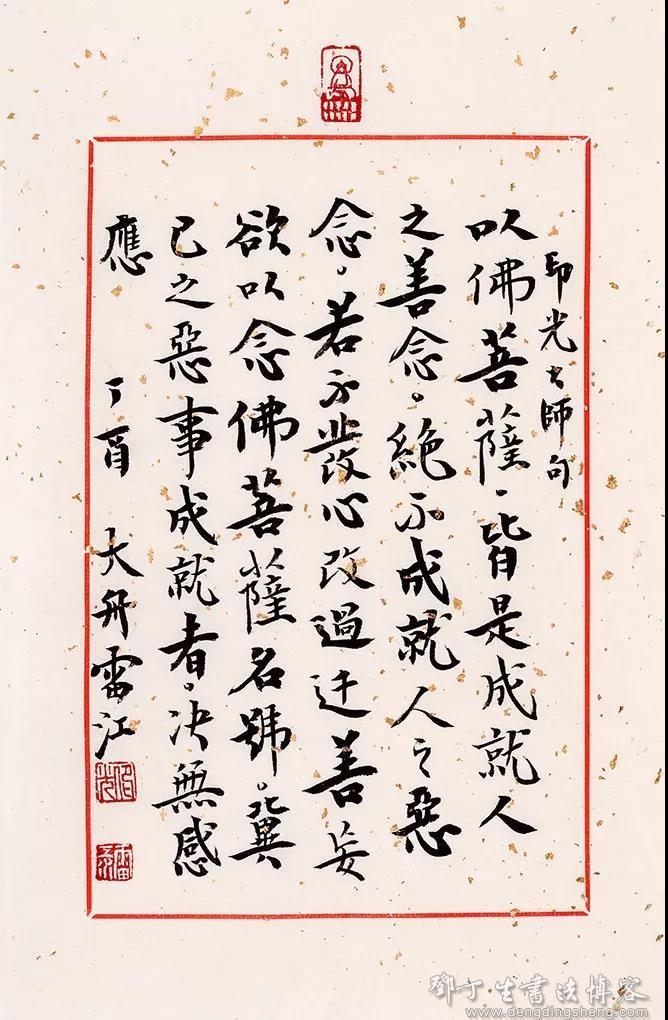 印光大師句
以佛菩薩、皆是成就人
之善念。絶不成就人之惡
念。若不發心改過迁善妄
欲以念佛菩薩名號。冀
已之惡事成就者。决無感
應 丁酉 大舟雷江
鄧丁生書法博客
www.dengdingsheng.com